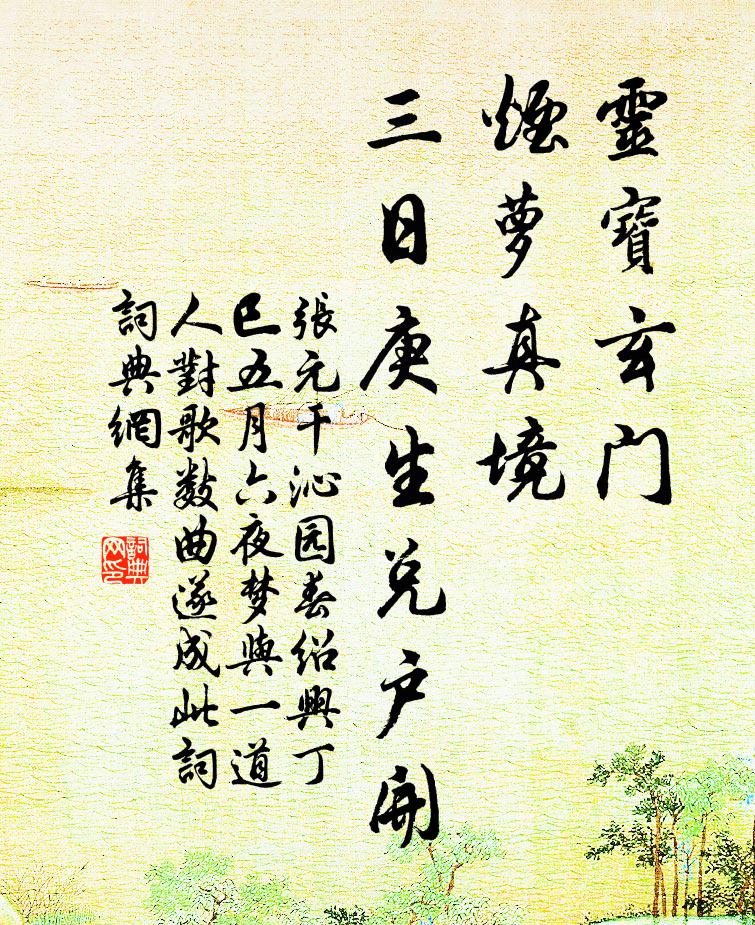 靈寶玄門
煙萝真境
三日庚生兑户開
張元干沁园春绍興丁
巳五月六夜梦與一道
人對歌数曲遂成此詞
詞典網集
詞典网印